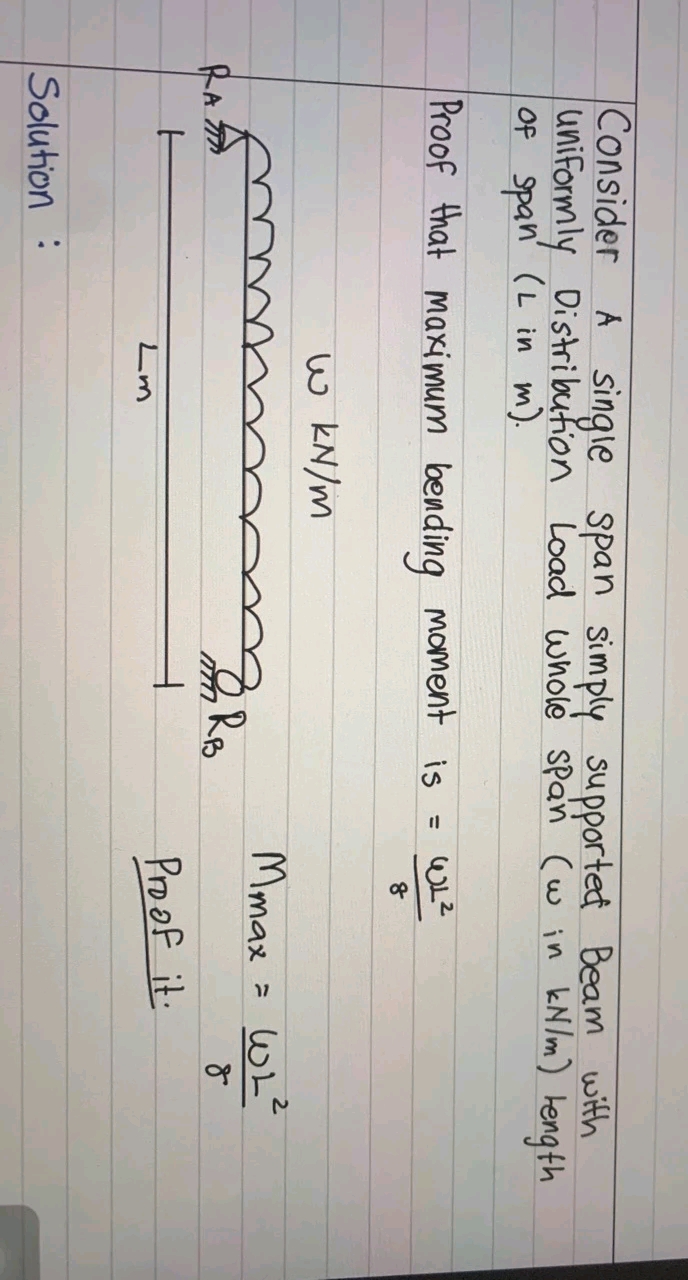 Consider A single span simply supported Beam with
uniformly Distribution Load whole span (w in kN/m) length
of span (L in m).
Proof that maximum bending moment is = wL²/8
w kN/m
RA
RB
Lm
Mmax = wL²/8
Proof it.
Solution :